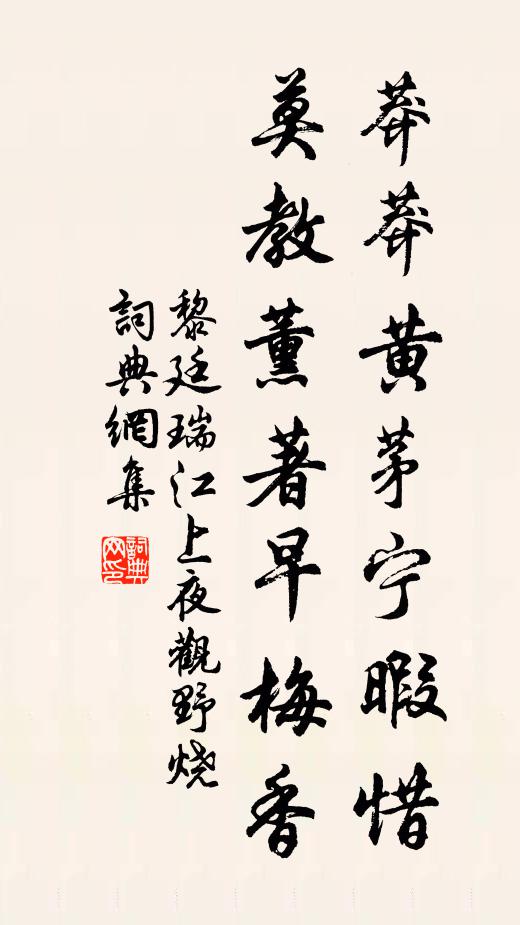 莽莽黄茅宁暇惜
莫教薰著早梅香
黎廷瑞江上夜觀野烧
詞典網集
詞典网印